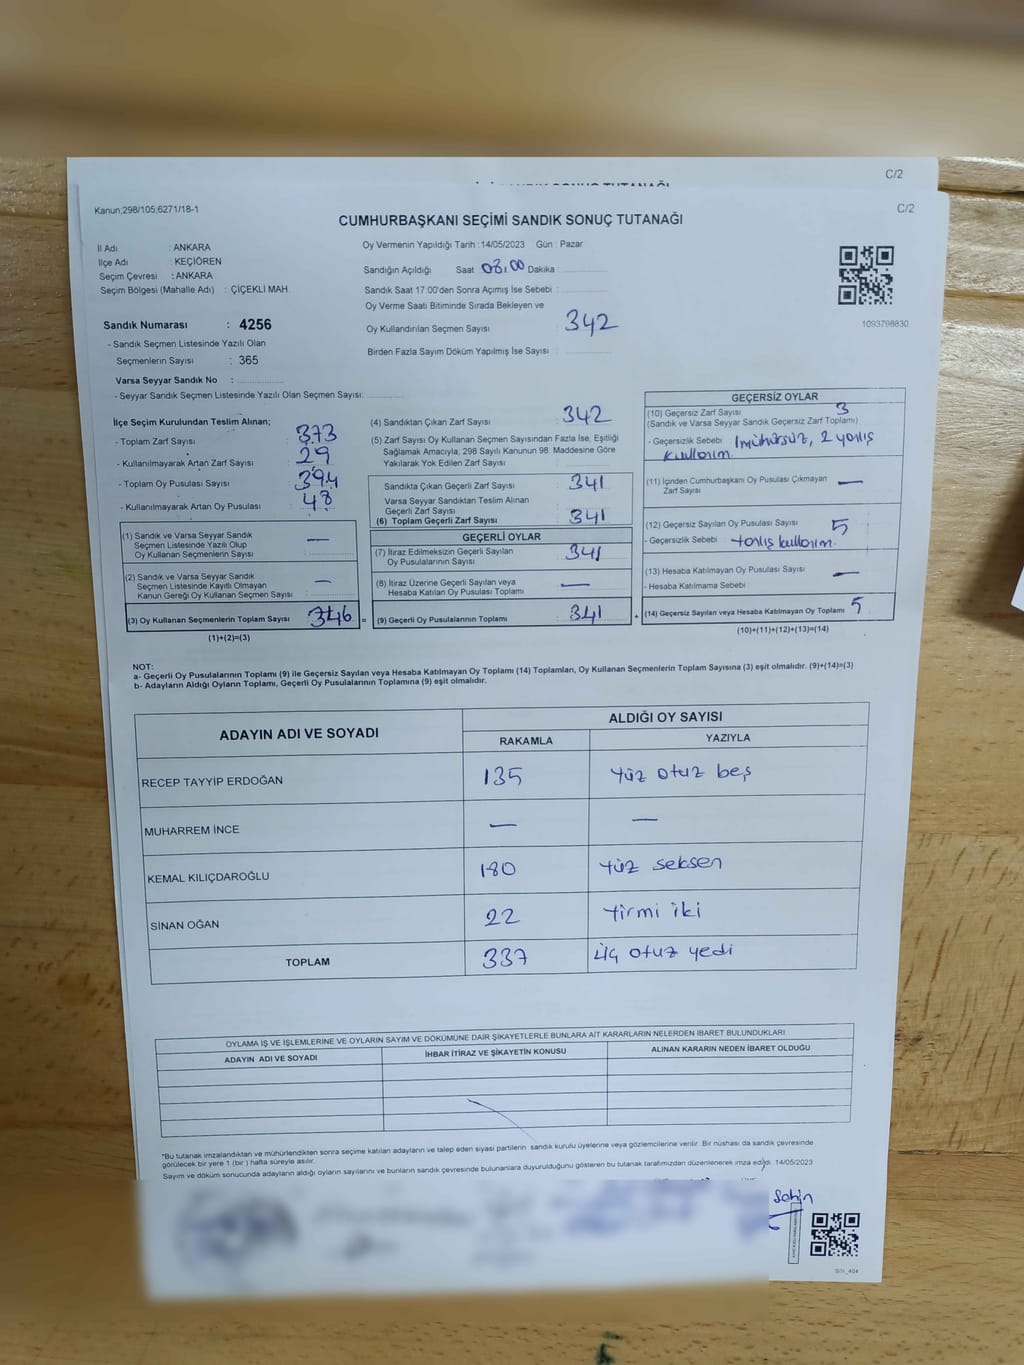 C/2
Kanun:298/105;6271/18-1
C/2
CUMHURBAŞKANI SEÇİMİ SANDIK SONUÇ TUTANAĞI
İl Adı : ANKARA
İlçe Adı : KEÇİÖREN
Seçim Çevresi : ANKARA
Seçim Bölgesi (Mahalle Adı) : ÇİÇEKLİ MAH.
Oy Vermenin Yapıldığı Tarih :14/05/2023 Gün : Pazar
Sandığın Açıldığı Saat : 08.00 Dakika :
Sandık Saat 17:00'den Sonra Açımış İse Sebebi :
Oy Verme Saati Bitiminde Sırada Bekleyen ve
Oy Kullandırılan Seçmen Sayısı : 342
Birden Fazla Sayım Döküm Yapılmış İse Sayısı :
1093798830
Sandık Numarası : 4256
- Sandık Seçmen Listesinde Yazılı Olan
Seçmenlerin Sayısı : 365
Varsa Seyyar Sandık No :
- Seyyar Sandık Seçmen Listesinde Yazılı Olan Seçmen Sayısı:
İlçe Seçim Kurulundan Teslim Alınan;
- Toplam Zarf Sayısı : 373
- Kullanılmayarak Artan Zarf Sayısı : 29
- Toplam Oy Pusulası Sayısı : 394
- Kullanılmayarak Artan Oy Pusulası : 48
(1) Sandık ve Varsa Seyyar Sandık
Seçmen Listesinde Yazılı Olup
Oy Kullanan Seçmenlerin Sayısı : —
(2) Sandık ve Varsa Seyyar Sandık
Seçmen Listesinde Kayıtlı Olmayan
Kanun Gereği Oy Kullanan Seçmen Sayısı : —
(3) Oy Kullanan Seçmenlerin Toplam Sayısı : 346
(1)+(2)=(3)
(4) Sandıktan Çıkan Zarf Sayısı : 342
(5) Zarf Sayısı Oy Kullanan Seçmen Sayısından Fazla İse, Eşitliği
Sağlamak Amacıyla; 298 Sayılı Kanunun 98. Maddesine Göre
Yakılarak Yok Edilen Zarf Sayısı :
Sandıkta Çıkan Geçerli Zarf Sayısı : 341
Varsa Seyyar Sandıktan Teslim Alınan
Geçerli Zarf Sayısı :
(6) Toplam Geçerli Zarf Sayısı : 341
GEÇERLİ OYLAR
(7) İtiraz Edilmeksizin Geçerli Sayılan
Oy Pusulasının Sayısı : 341
(8) İtiraz Üzerine Geçerli Sayılan veya
Hesaba Katılan Oy Pusulası Toplamı : —
= (9) Geçerli Oy Pusulalarının Toplamı : 341
GEÇERSİZ OYLAR
(10) Geçersiz Zarf Sayısı : 3
(Sandık ve Varsa Seyyar Sandık Geçersiz Zarf Toplamı)
- Geçersizlik Sebebi : 1 mühürsüz, 2 yanlış
kullanım.
(11) İçinden Cumhurbaşkanı Oy Pusulası Çıkmayan
Zarf Sayısı : —
(12) Geçersiz Sayılan Oy Pusulası Sayısı : 5
- Geçersizlik Sebebi : yanlış kullanım.
(13) Hesaba Katılmayan Oy Pusulası Sayısı : —
- Hesaba Katılmama Sebebi :
+ (14) Geçersiz Sayılan veya Hesaba Katılmayan Oy Toplamı : 5
(10)+(11)+(12)+(13)=(14)
NOT:
a- Geçerli Oy Pusulalarının Toplamı (9) ile Geçersiz Sayılan veya Hesaba Katılmayan Oy Toplamı (14) Toplamları, Oy Kullanan Seçmenlerin Toplam Sayısına (3) eşit olmalıdır. (9)+(14)=(3)
b- Adayların Aldığı Oyların Toplamı, Geçerli Oy Pusulalarının Toplamına (9) eşit olmalıdır.
ADAYIN ADI VE SOYADI
ALDIĞI OY SAYISI
RAKAMLA YAZIYLA
RECEP TAYYİP ERDOĞAN 135 Yüz otuz beş
MUHARREM İNCE — —
KEMAL KILIÇDAROĞLU 180 Yüz seksen
SİNAN OĞAN 22 Yirmi iki
TOPLAM 337 üç otuz yedi
OYLAMA İŞ VE İŞLEMLERİNE VE OYLARIN SAYIM VE DÖKÜMÜNE DAİR ŞİKAYETLERLE BUNLARA AİT KARARLARIN NELERDEN İBARET BULUNDUKLARI
ADAYIN ADI VE SOYADI İHBAR İTİRAZ VE ŞİKAYETİN KONUSU ALINAN KARARIN NEDEN İBARET OLDUĞU
*Bu tutanak imzalandıktan ve mühürlendikten sonra seçime katılan adayların ve talep eden siyasi partilerin sandık kurulu üyelerine veya gözlemcilerine verilir. Bir nüshası da sandık çevresinde
görülecek bir yere 1 (bir ) hafta süreyle asılır.
Sayım ve döküm sonucunda adayların aldığı oyların sayılarını ve bunların sandık çevresinde bulunanlara duyurulduğunu gösteren bu tutanak tarafımızdan düzenlenerek imza edildi. 14/05/2023
Şahin